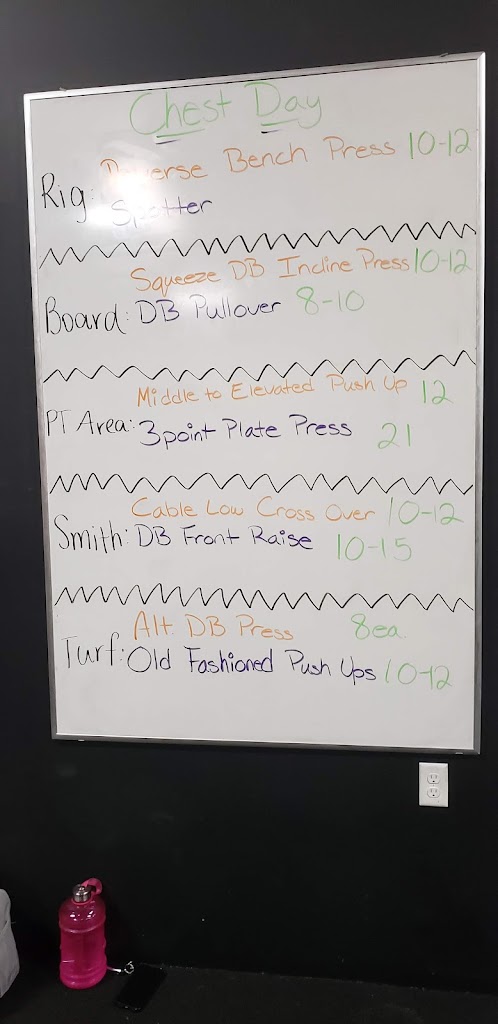 Chest Day
Reverse Bench Press 10-12
Rig: Spotter
Squeeze DB Incline Press 10-12
Board: DB Pullover 8-10
Middle to Elevated Push Up 12
PT Area: 3point Plate Press 21
Cable Low Cross Over 10-12
Smith: DB Front Raise 10-15
Alt. DB Press 8ea.
Turf: Old Fashioned Push Ups 10-12